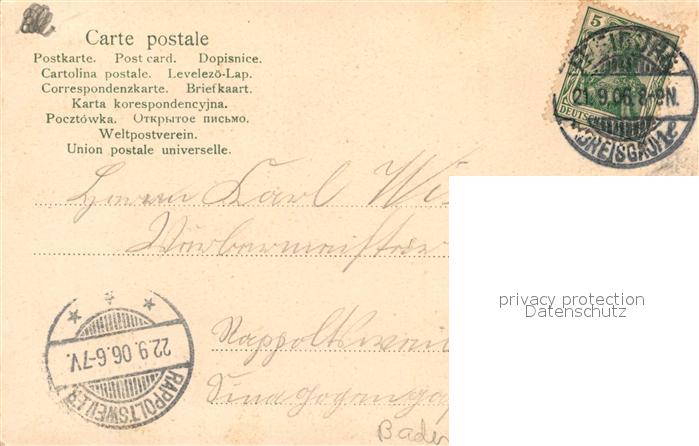 Carte postale
Postkarte. Post card. Dopisnice.
Cartolina postale. Levelező-Lap.
Correspondenzkarte. Briefkaart.
Karta korespondencyjna.
Pocztówka. Открытое письмо.
Weltpostverein.
Union postale universelle.
5
DEUTSCHES
21.9.06.8-9N.
(BREISGAU)
Herrn Karl
Rappoltsweil
22.9.06.6-7V.
RAPPOLTSWEILER
Baden
privacy protection
Datenschutz